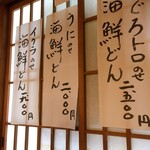 どろトロのせ
海鮮どん 二五〇〇円
うにのせ
海鮮どん 二〇〇〇円
イクラのせ
海鮮どん 一八〇〇円